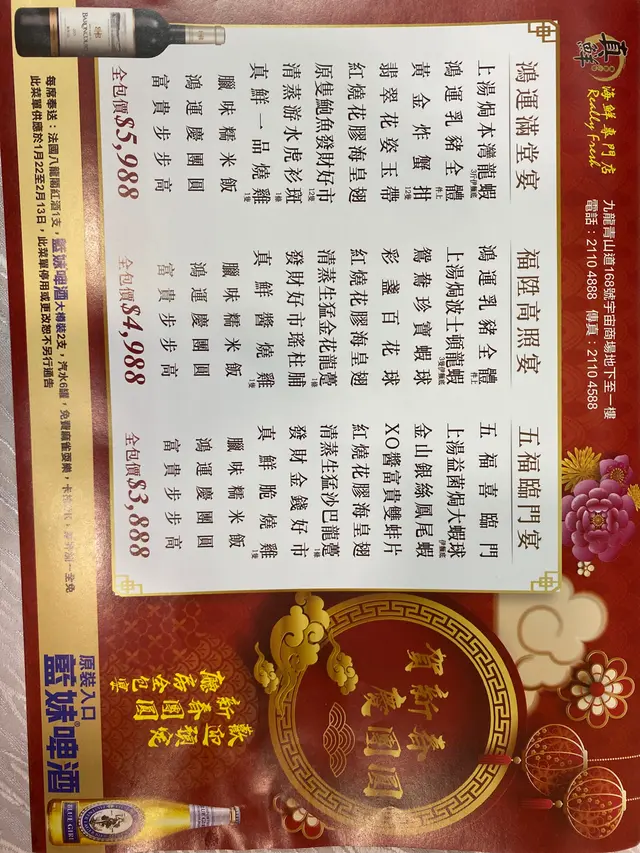 真鮮
海鮮專門店
Really Fresh
九龍青山道168號宇宙商場地下至一樓
電話：2110 4888 傳真：2110 4588
鴻運滿堂宴
上湯焗本灣龍蝦 3斤伊麵底
鴻運乳豬全體 件上
黃金炸蟹拑 12隻
翡翠花姿玉帶
紅燒花膠海皇翅
原隻鮑魚發財好市 12隻
清蒸游水虎衫斑 1條
真鮮一品燒雞 1隻
臘味糯米飯
鴻運慶團圓
富貴步步高
全包價$5,988
福陞高照宴
鴻運乳豬全體 件上
上湯焗波士頓龍蝦 3隻伊麵底
鴛鴦珍寶蝦球
彩盞百花球
紅燒花膠海皇翅
清蒸生猛金花龍躉 1條
發財好市瑤柱脯
真鮮醬燒雞 1隻
臘味糯米飯
鴻運慶團圓
富貴步步高
全包價$4,988
五福臨門宴
五福喜臨門
上湯益菌焗大蝦球 伊麵底
金山銀絲鳳尾蝦
XO醬富貴雙蚌片
紅燒花膠海皇翅
清蒸生猛沙巴龍躉 1條
發財金錢好市
真鮮脆燒雞 1隻
臘味糯米飯
鴻運慶團圓
富貴步步高
全包價$3,888
每席奉送：法國八龍開紅酒1支，藍妹啤酒大樽裝2支，汽水6罐，免費麻雀耍樂，
此菜單供應於1月22至2月13日，此菜單停用或更改恕不另行通告
賀新春
慶團圓
新春團圓
原裝入口
藍妹®啤酒
BARON
BLUE GIRL